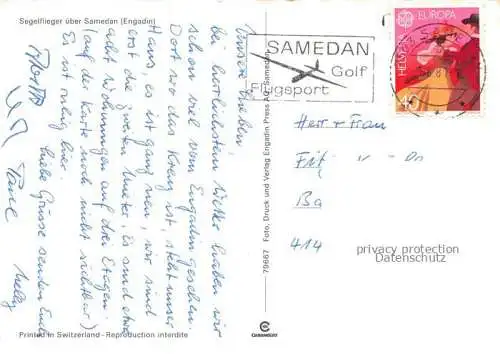 Segelflieger über Samedan (Engadin)
Unsere Lieben,
bei herrlichstem Wetter haben wir
schon viel vom Engadin gesehen.
Dort wo das Kreuz ist, steht unser
Haus, es ist ganz neu, wir sind
erst die zweiten Mieter. Es sind etwa
acht Wohnungen auf drei Etagen.
(auf der Karte noch nicht sichtbar)
Es ist ruhig hier.
Liebe Grüsse senden Euch
Printed in Switzerland - Reproduction interdite
79667 Foto, Druck und Verlag Engadin Press AG, Samedan
CARAMOUNT
SAMEDAN
Golf
Flugsport
EUROPA
HELVETIA
Herr + Frau
Ba
414
privacy protection
Datenschutz